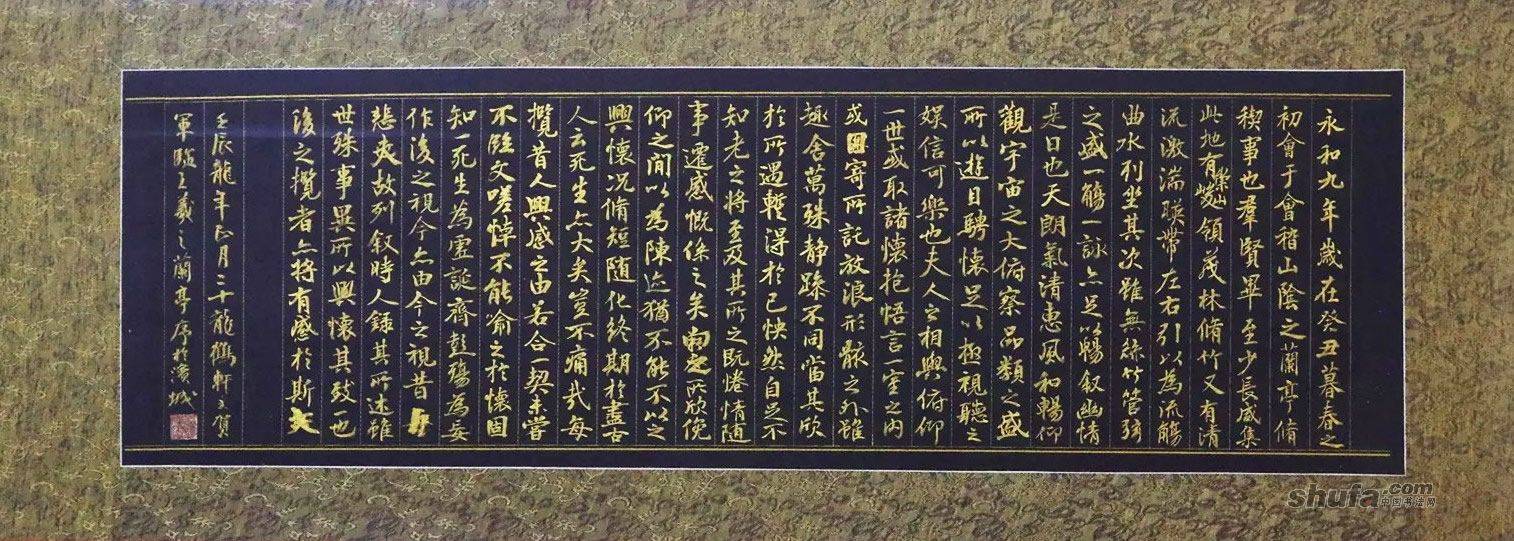 永和九年歲在癸丑暮春之
初會于會稽山陰之蘭亭脩
稧事也羣賢畢至少長咸集
此地有崇山峻領茂林脩竹又有清
流激湍暎帶左右引以為流觴
曲水列坐其次雖無絲竹管弦
之盛一觴一詠亦足以暢叙幽情
是日也天朗氣清惠風和暢仰
觀宇宙之大俯察品類之盛
所以遊目騁懷足以極視聽之
娛信可樂也夫人之相與俯仰
一世或取諸懷抱悟言一室之內
或因寄所託放浪形骸之外雖
趣舍萬殊静躁不同當其欣
於所遇蹔得於己怏然自足不
知老之將至及其所之既惓情隨
事遷感慨係之矣向之所欣俛
仰之間以為陳迹猶不能不以之
興懷況脩短隨化終期於盡古
人云死生亦大矣豈不痛哉每
攬昔人興感之由若合一契未嘗
不臨文嗟悼不能喻之於懷固
知一死生為虛誕齊彭殤為妄
作後之視今亦由今之視昔
悲夫故列叙時人錄其所述雖
世殊事異所以興懷其致一也
後之攬者亦將有感於斯文
壬辰龍年正月二十龍鶴軒主賀
軍臨王羲之蘭亭序於濱城
shufa.com
中国书法网